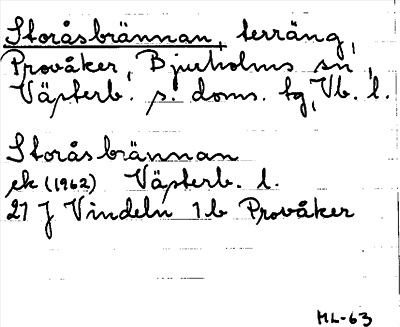 Storåsbrännan, terräng,
Provåker, Bjurholms sn,
Västerb. s. doms. tg, Vb. l.
Storåsbrännan
ek (1962) Västerb. l.
21 J Vindeln 1b Provåker
ML-63